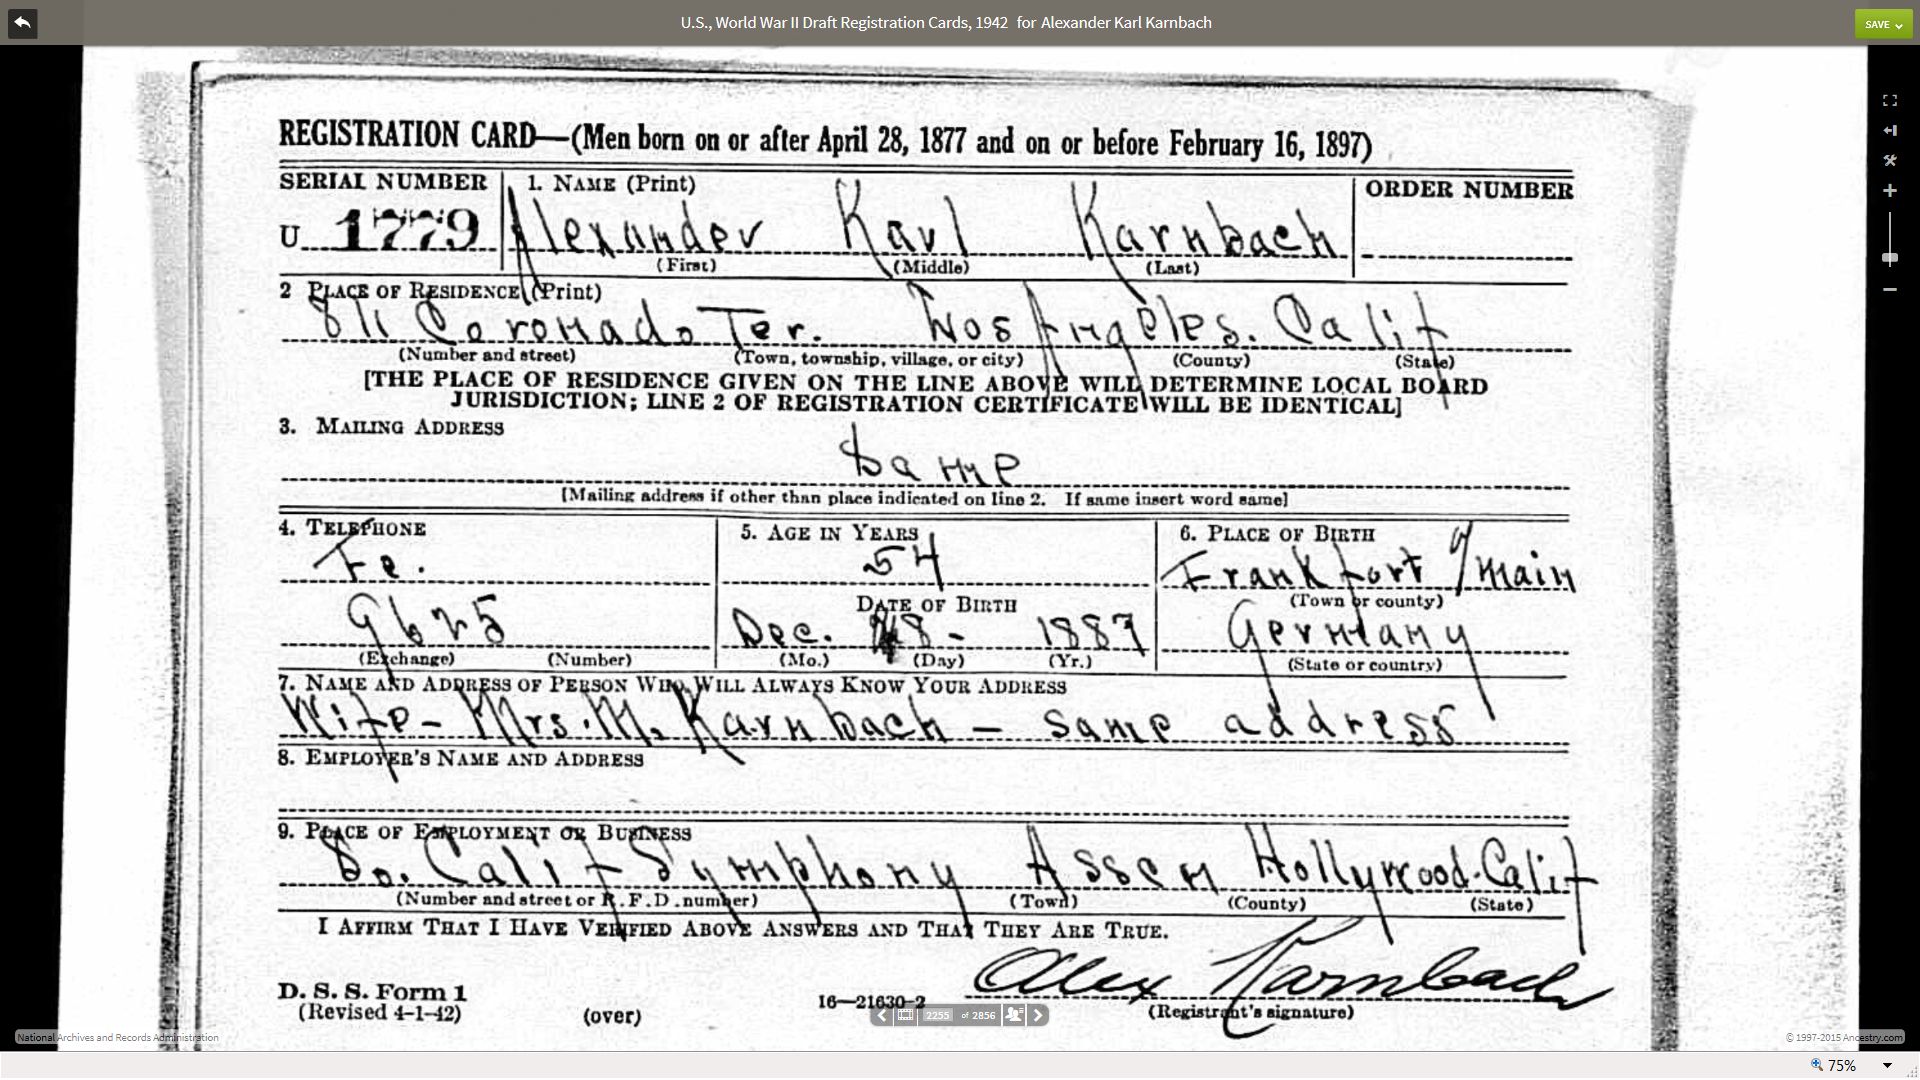 U.S., World War II Draft Registration Cards, 1942 for Alexander Karl Karnbach
SAVE
REGISTRATION CARD—(Men born on or after April 28, 1877 and on or before February 16, 1897)
SERIAL NUMBER 1. NAME (Print) ORDER NUMBER
U 1779 Alexander Karl Karnbach
(First) (Middle) (Last)
2 PLACE OF RESIDENCE (Print)
811 Coronado Ter. Los Angeles. Calif
(Number and street) (Town, township, village, or city) (County) (State)
[THE PLACE OF RESIDENCE GIVEN ON THE LINE ABOVE WILL DETERMINE LOCAL BOARD
JURISDICTION; LINE 2 OF REGISTRATION CERTIFICATE WILL BE IDENTICAL]
3. MAILING ADDRESS
Same
[Mailing address if other than place indicated on line 2. If same insert word same]
4. TELEPHONE 5. AGE IN YEARS 6. PLACE OF BIRTH
Fe. 54 Frankfort /Main
DATE OF BIRTH (Town or county)
9625 Dec. 8- 1887 Germany
(Exchange) (Number) (Mo.) (Day) (Yr.) (State or country)
7. NAME AND ADDRESS OF PERSON WHO WILL ALWAYS KNOW YOUR ADDRESS
Wife- Mrs. M. Karnbach - same address
8. EMPLOYER'S NAME AND ADDRESS
9. PLACE OF EMPLOYMENT OR BUSINESS
So. Calif Symphony Assen Hollywood. Calif
(Number and street or R. F. D. number) (Town) (County) (State)
I AFFIRM THAT I HAVE VERIFIED ABOVE ANSWERS AND THAT THEY ARE TRUE.
Alex Karnbach
D. S. S. Form 1
(Revised 4-1-42) (over) 16—21630-2 (Registrant's signature)
2255 of 2856
National Archives and Records Administration
© 1997-2015 Ancestry.com
75%